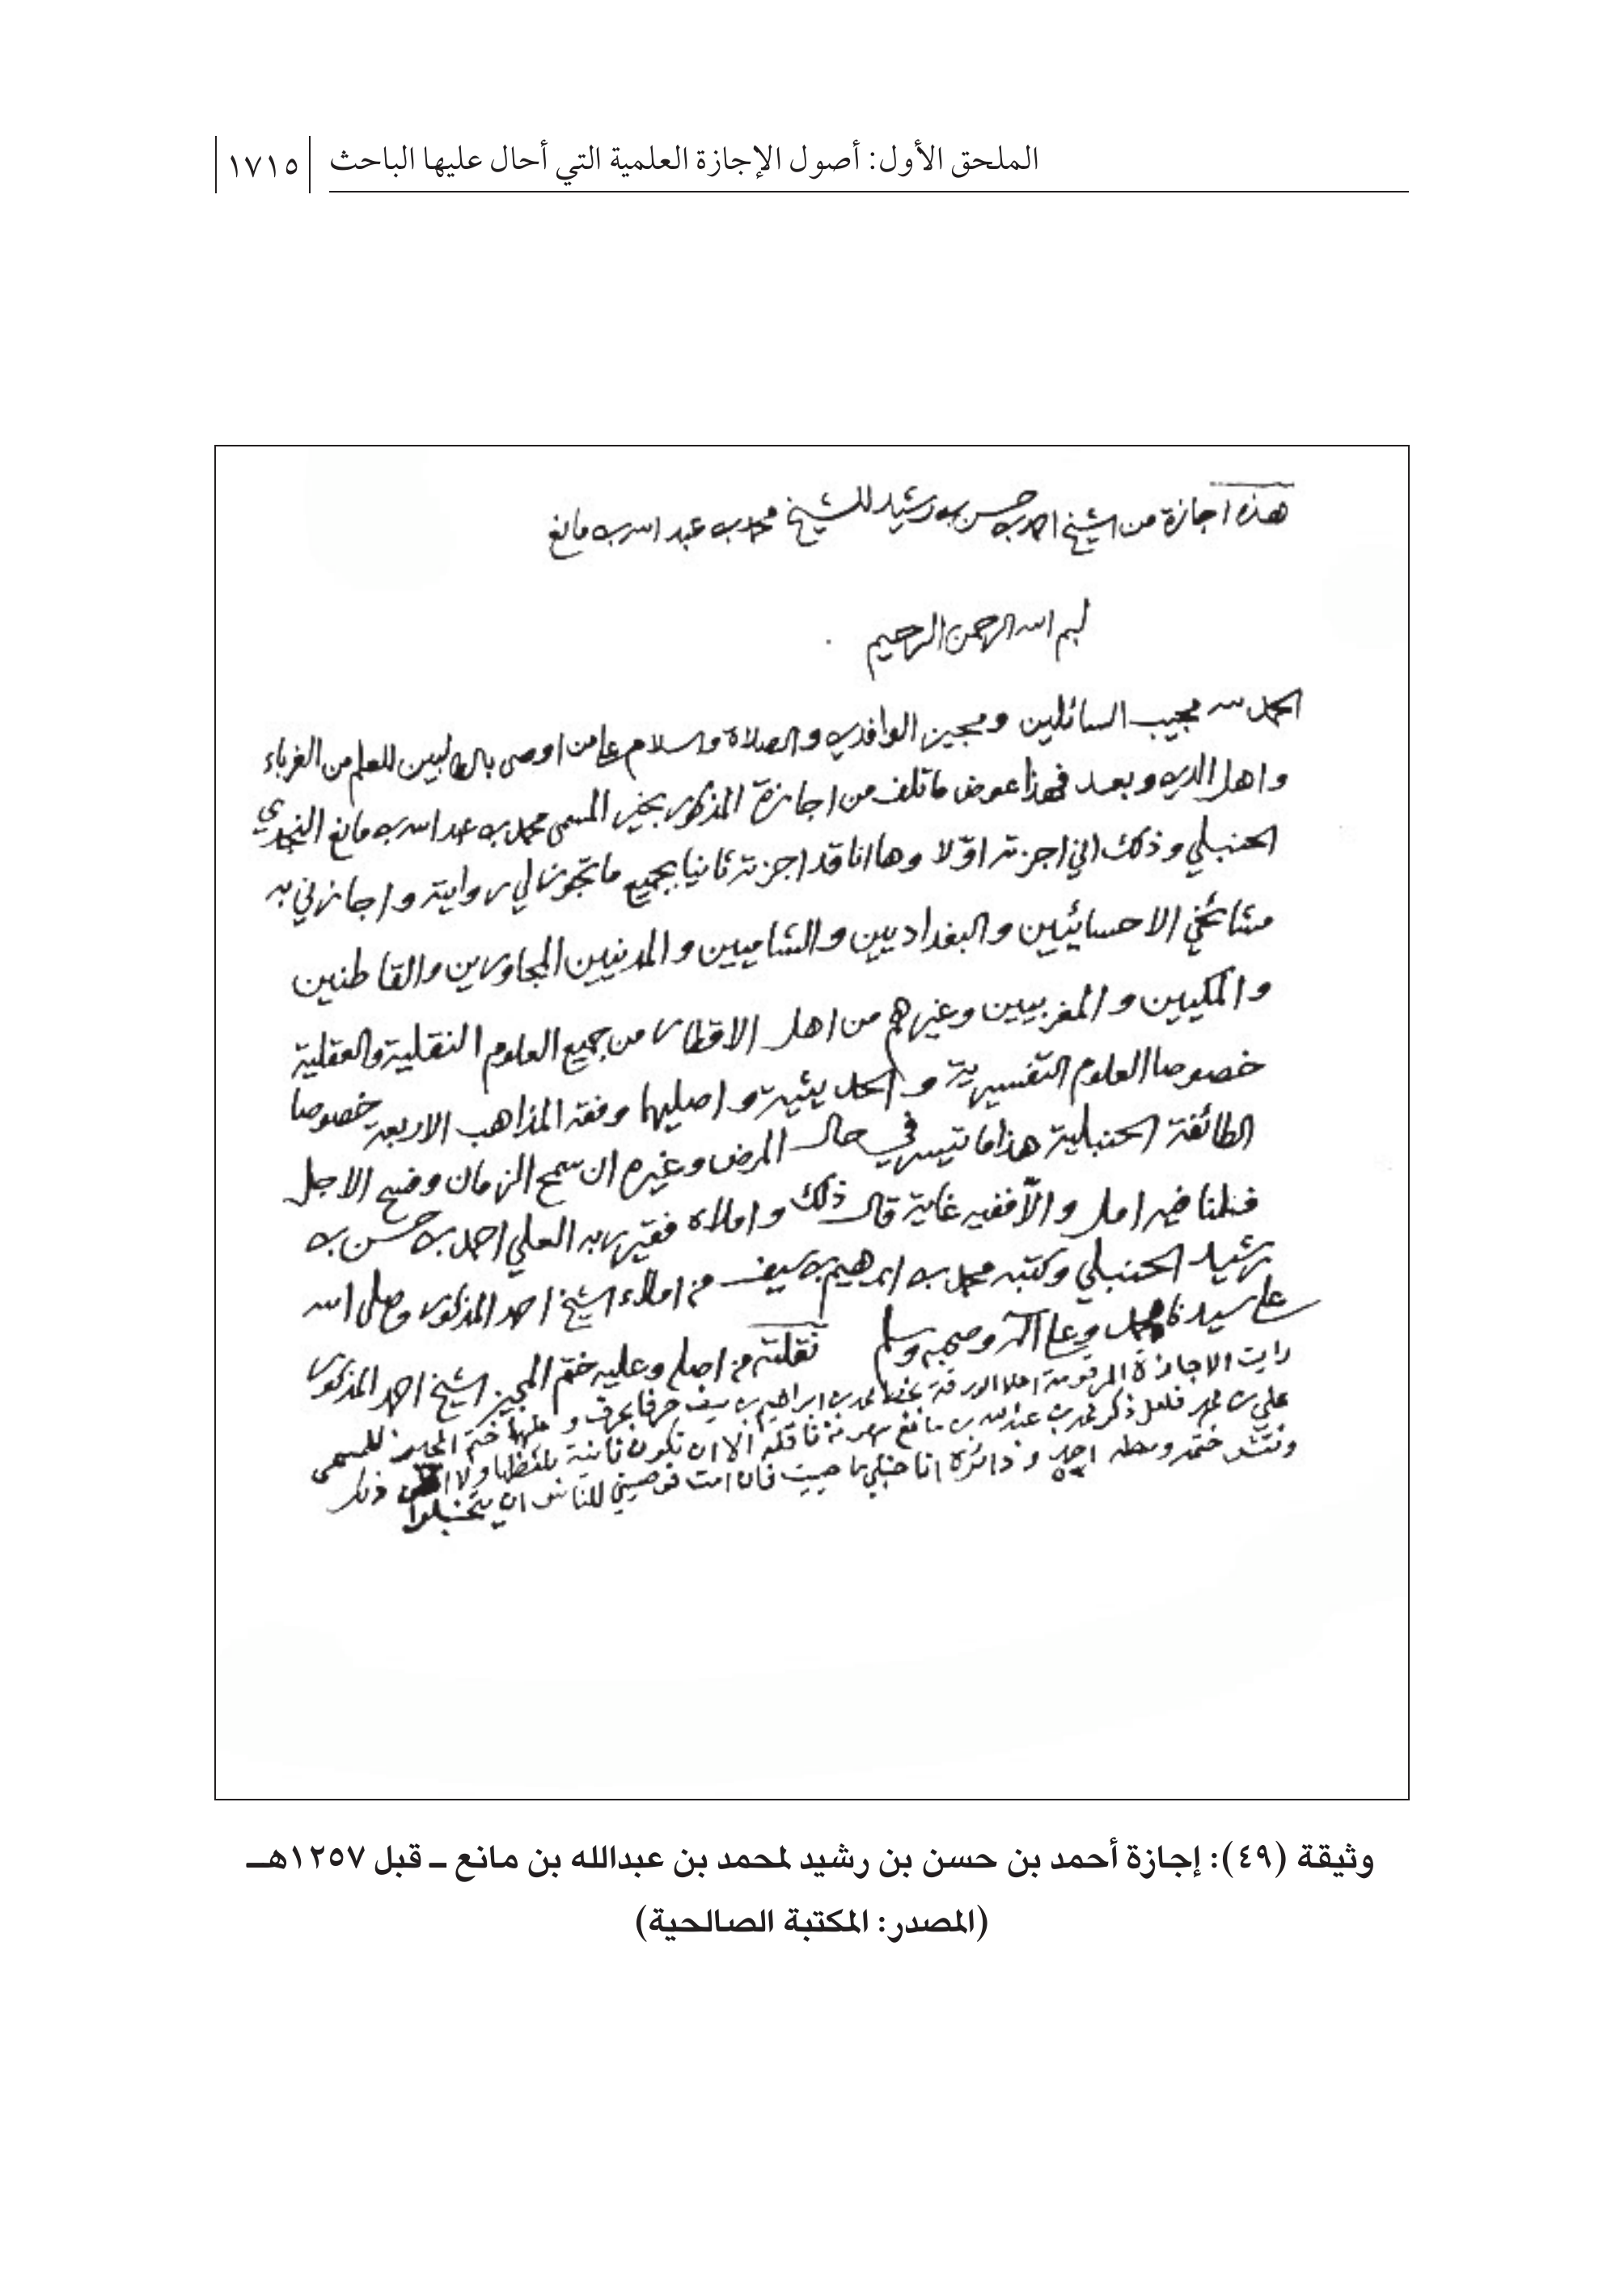 الملحق الأول: أصول الإجازة العلمية التي أحال عليها الباحث ١٧١٥
هذه اجازة من الشيخ احمد بن حسن بن رشيد للشيخ محمد بن عبد الله بن مانع
بسم الله الرحمن الرحيم
الحمد لله مجيب السائلين ومجيز الوافدين والصلاة والسلام على من اوصى بالطالبين للعلم من الغرباء
واهل الدين وبعد فهذا عوض ما تلف من اجازة المذكور بخير المسمى محمد بن عبد الله بن مانع النجدي
الحنبلي وذلك اني اجزته اوّلا وها انا قد اجزته ثانيا بجميع ما تجوز لي رواية واجازني به
مشائخي الاحسائيين والبغداديين والشاميين والمدنيين المجاورين والقاطنين
والمكيين والمغربيين وغيرهم من اهل الاقطار من جميع العلوم النقلية والعقلية
خصوصا العلوم التفسيرية والحديثية واصليها وفقه المذاهب الاربعة خصوصا
الطائفة الحنبلية هذا ما تيسر في حال المرض وغيره ان سمح الزمان وفسح الاجل
فلنا فيه امل والّا ففيه غاية قال ذلك واملاه فقير ربه العلي احمد بن حسن بن
رشيد الحنبلي وكتبه محمد بن ابرهيم بن سيف من املاء الشيخ احمد المذكور وصلى الله
على سيدنا محمد وعلى آله وصحبه وسلم نقلته من اصله وعليه ختم المجيز الشيخ احمد المذكور
رايت الاجازة المرقومة اعلا الورقة بخط محمد بن ابراهيم بن سيف حرفا بحرف وعليها ختم المجيز للمسمى
علي بن محمد فلعل ذكر محمد بن عبد الله بن مانع من ناقله الا ان تكون ثانية بلفظها ولا ذلك
ختمه وسطه احمد و دائرة انا حنبلي ما حييت فان امت فوصيتي للناس ان يتحنبلوا
وثيقة (٤٩): إجازة أحمد بن حسن بن رشيد لمحمد بن عبدالله بن مانع ـ قبل ١٢٥٧هـ
(المصدر: المكتبة الصالحية)